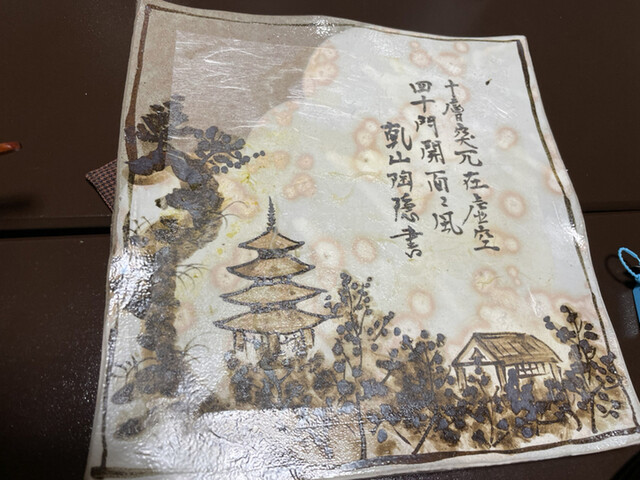 十層突兀在虚空
四十門開面〻風
乾山陶隠書